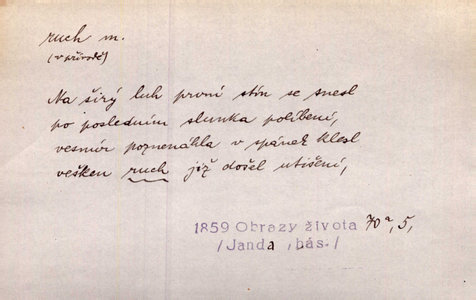 ruch m.
(v přírodě)
Na širý luh první stín se snesl
po posledním slunka políbení,
vesmír poznenáhla v spánek klesl
vešken ruch již došel utišení,
1859 Obrazy života 70a, 5,
/Janda, bás./